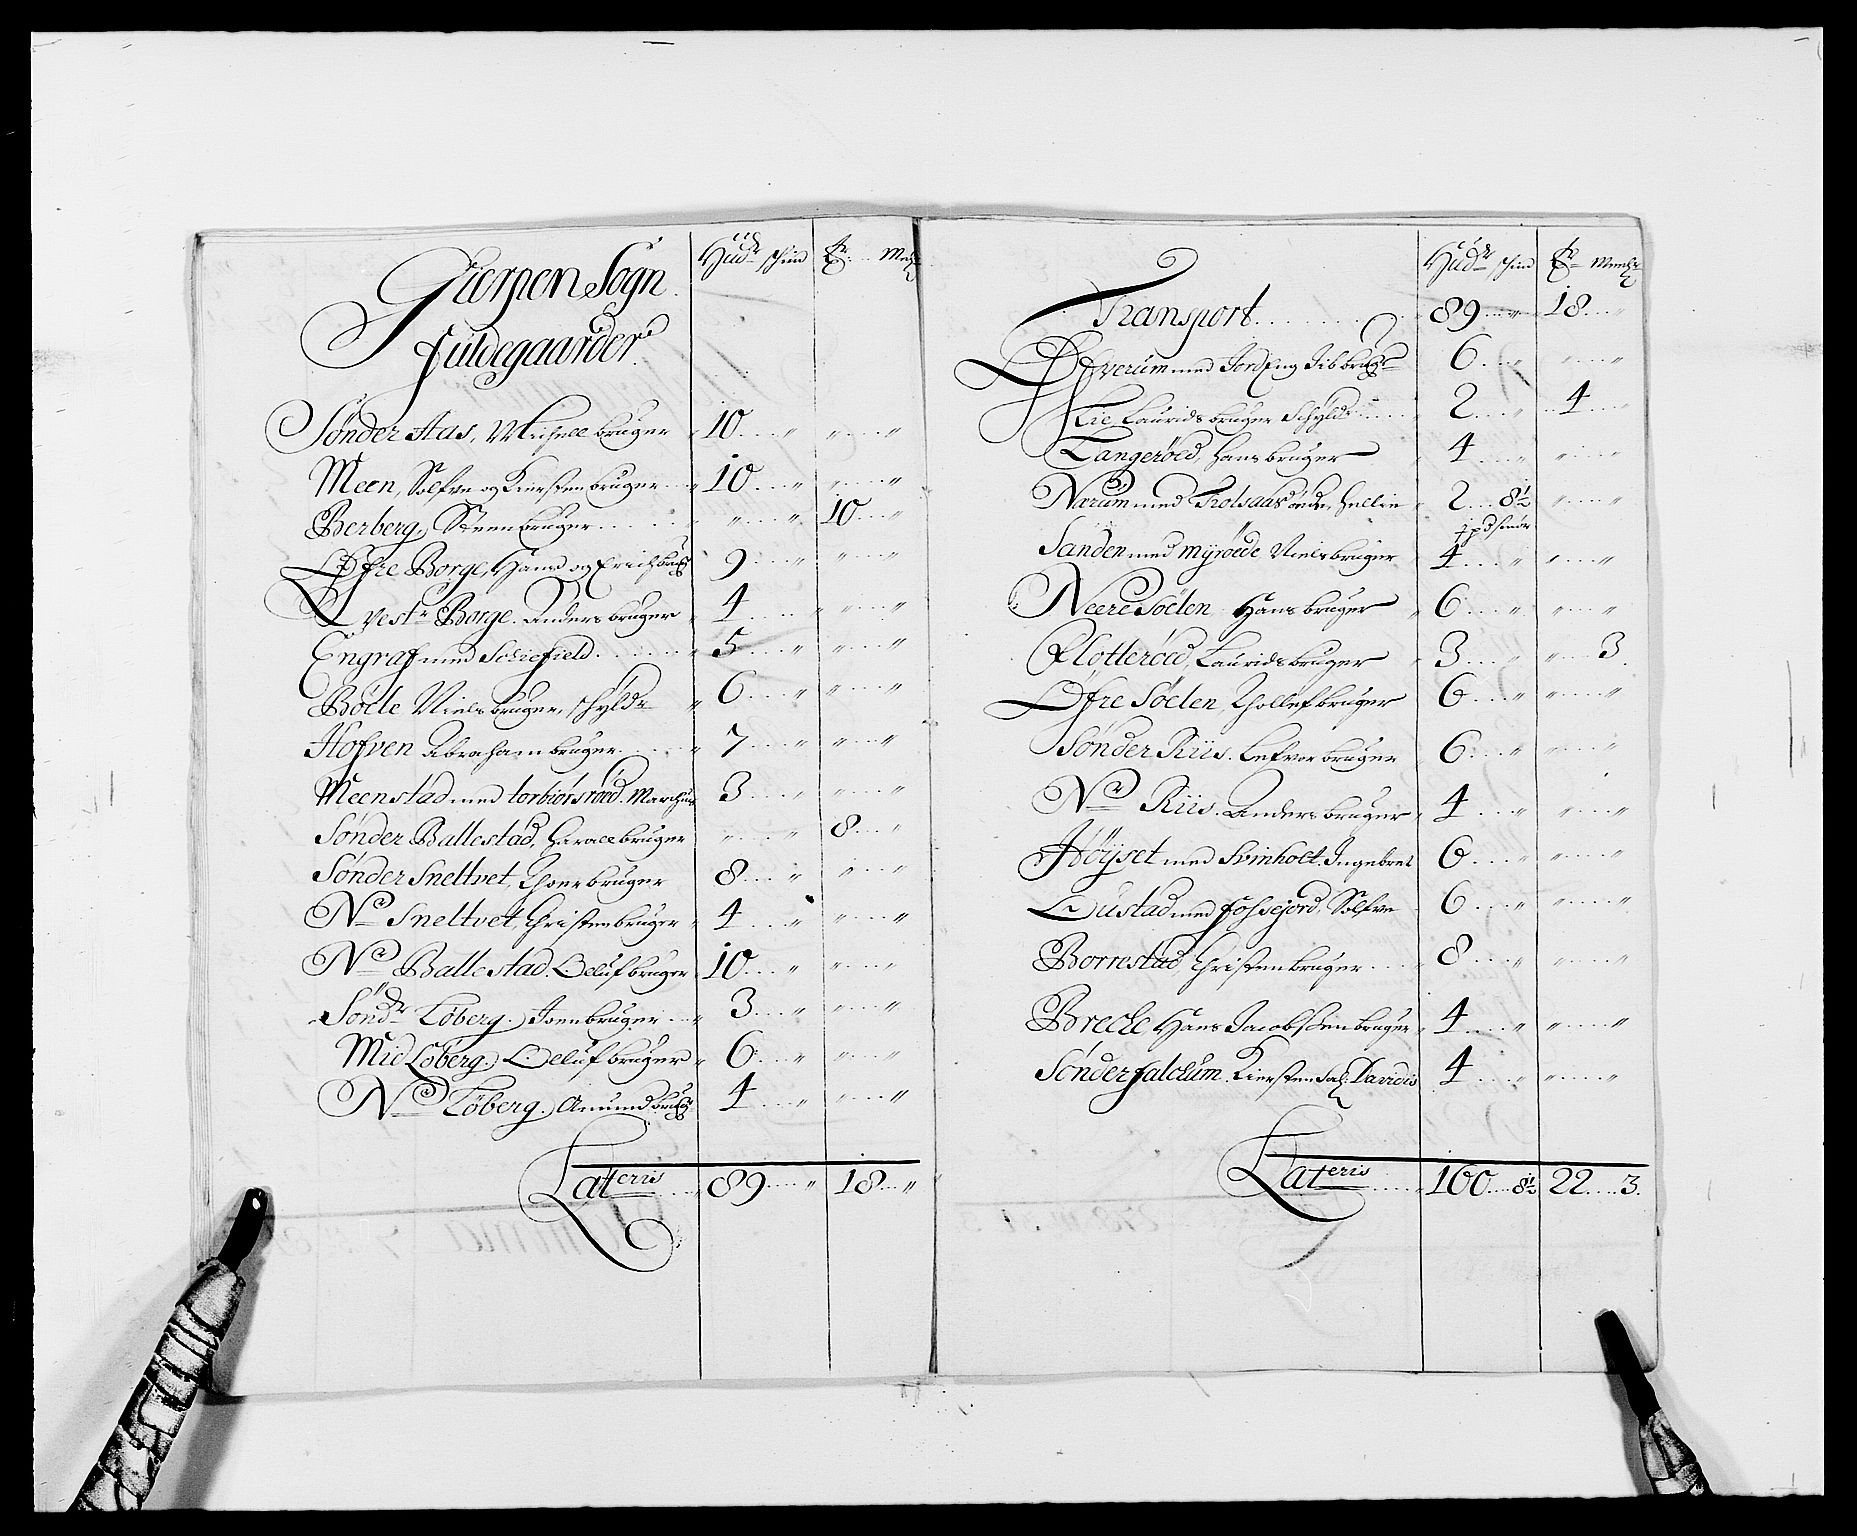 Gierpen Sogn
Fuldegaarder
Hudr schind Mchr
Sønder Aas, Michell bruger 10 " " "
Meen, Solfve og Kiersten bruger " 10 " " "
Berberg, Steen bruger " " 10 "
Øfre Borge, Hans og Erich brugr 9 " " "
Vestr Borge. Anders bruger 4 " " "
Engraf med Schiefield 5 " " "
Bøele Niels bruger, schyldr " 6 " " "
Hofven Abraham bruger 7 " " "
Meenstad med torbiørsrøed. Marchus 3 " " "
Sønder Ballestad, Harael bruger " " 8 "
Sønder Sneltvet, Thoer bruger 8 " " "
Nr Sneltvet, Christen bruger 4 " " "
Nr Ballestad. Oeluf bruger 10 " " "
Søndr Løberg. Joen bruger 3 " " "
Mid Løberg. Oeluf bruger 6 " " "
Nr Løberg. Amund brugr 4 " " "
Lateris 89 " 18 "
Hudr schind Mchr
Transport 89 " 18 "
Øfverum med Jord Eng Jib brugr 6 " " "
Lie, Laurids bruger Schyldr 2 " 4 "
Tangerøed, Hans bruger 4 " " "
Nærum med Trolsaas Hellie 2 8½ " "
Sanden med Myrøede Niels bruger 4 " " "
Neere Søelen Hans bruger 6 " " "
Flotterøed, Laurids bruger 3 " " 3
Øfre Søelen, Thollef bruger 6 " " "
Sønder Riis. Lefvor bruger 6 " " "
Nr Riis. Anders bruger 4 " " "
Høyset med Svinholt. Ingebret 6 " " "
Oustad med Fossejord, Solfve 6 " " "
Borrestad Christen bruger 8 " " "
Breche Hans Jacobsen bruger 4 " " "
Sønder falchum. Kiersten Sal: Davids 4 " " "
Lateris 160 8½ 22 3